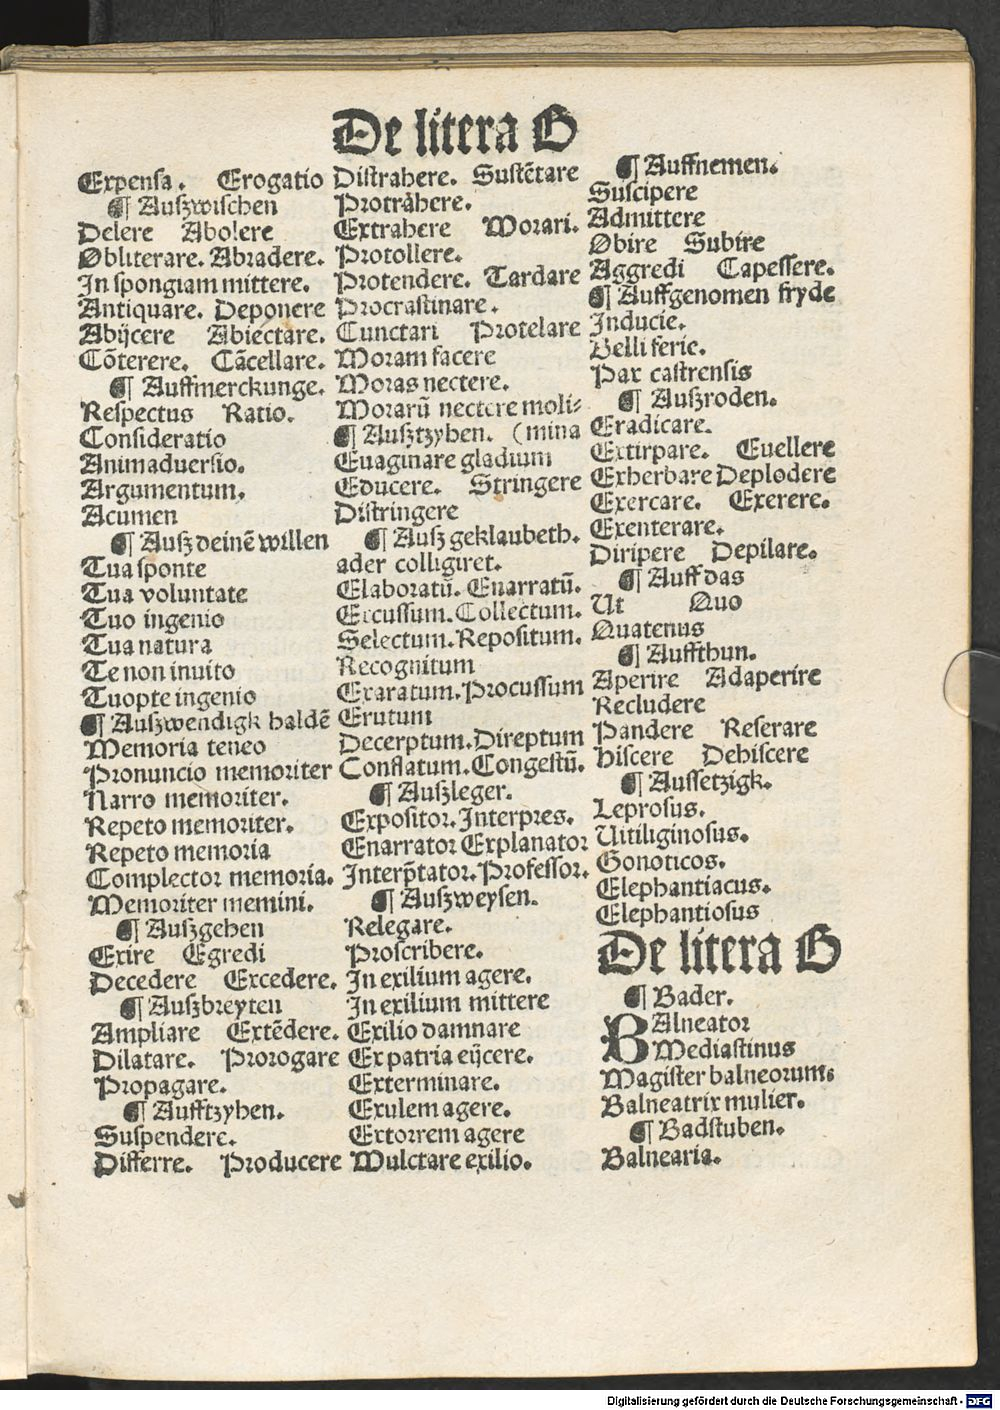 De litera B
Expensa. Erogatio
¶ Auszwischen
Delere Abolere
Obliterare. Abradere.
In spongiam mittere.
Antiquare. Deponere
Abijcere Abiectare.
Cōterere. Cācellare.
¶ Auffmerckunge.
Respectus Ratio.
Consideratio
Animaduersio.
Argumentum.
Acumen
¶ Ausz deinē willen
Tua sponte
Tua voluntate
Tuo ingenio
Tua natura
Te non inuito
Tuopte ingenio
¶ Auszwendigk haldē
Memoria teneo
Pronuncio memoriter
Narro memoriter.
Repeto memoriter.
Repeto memoria
Complector memoria.
Memoriter memini.
¶ Auszgehen
Exire Egredi
Decedere Excedere.
¶ Auszbreyten
Ampliare Extēdere.
Dilatare. Prorogare
Propagare.
¶ Aufftzyhen.
Suspendere.
Differre. Producere
Distrahere. Sustētare
Protrahere.
Extrahere Morari.
Protollere.
Protendere. Tardare
Procrastinare.
Cunctari Protelare
Moram facere
Moras nectere.
Morarū nectere moli⸗
¶ Ausztzyhen. (mina
Euaginare gladium
Educere. Stringere
Distringere
¶ Ausz geklaubeth.
ader colligiret.
Elaboratū. Enarratū.
Excussum. Collectum.
Selectum. Repositum.
Recognitum
Exaratum. Procussum
Erutum
Decerptum. Direptum
Conflatum. Congestū.
¶ Auszleger.
Expositor. Interpres.
Enarrator Explanator
Interp̄tator. Professor.
¶ Auszweysen.
Relegare.
Proscribere.
In exilium agere.
In exilium mittere
Exilio damnare
Ex patria eijcere.
Exterminare.
Exulem agere.
Extorrem agere
Mulctare exilio.
¶ Auffnemen.
Suscipere
Admittere
Obire Subire
Aggredi Capessere.
¶ Auffgenomen fryde
Inducie.
Belli ferie.
Pax castrensis
¶ Auszroden.
Eradicare.
Extirpare. Euellere
Exherbare Deplodere
Exercare. Exerere.
Exenterare.
Diripere Depilare.
¶ Auff das
Ut Quo
Quatenus
¶ Auffthun.
Aperire Adaperire
Recludere
Pandere Reserare
Hiscere Dehiscere
¶ Aussetzigk.
Leprosus.
Uitiliginosus.
Gonoticos.
Elephantiacus.
Elephantiosus
De litera B
¶ Bader.
BAlneator
Mediastinus
Magister balneorum.
Balneatrix mulier.
¶ Badstuben.
Balnearia.
Digitalisierung gefördert durch die Deutsche Forschungsgemeinschaft - DFG